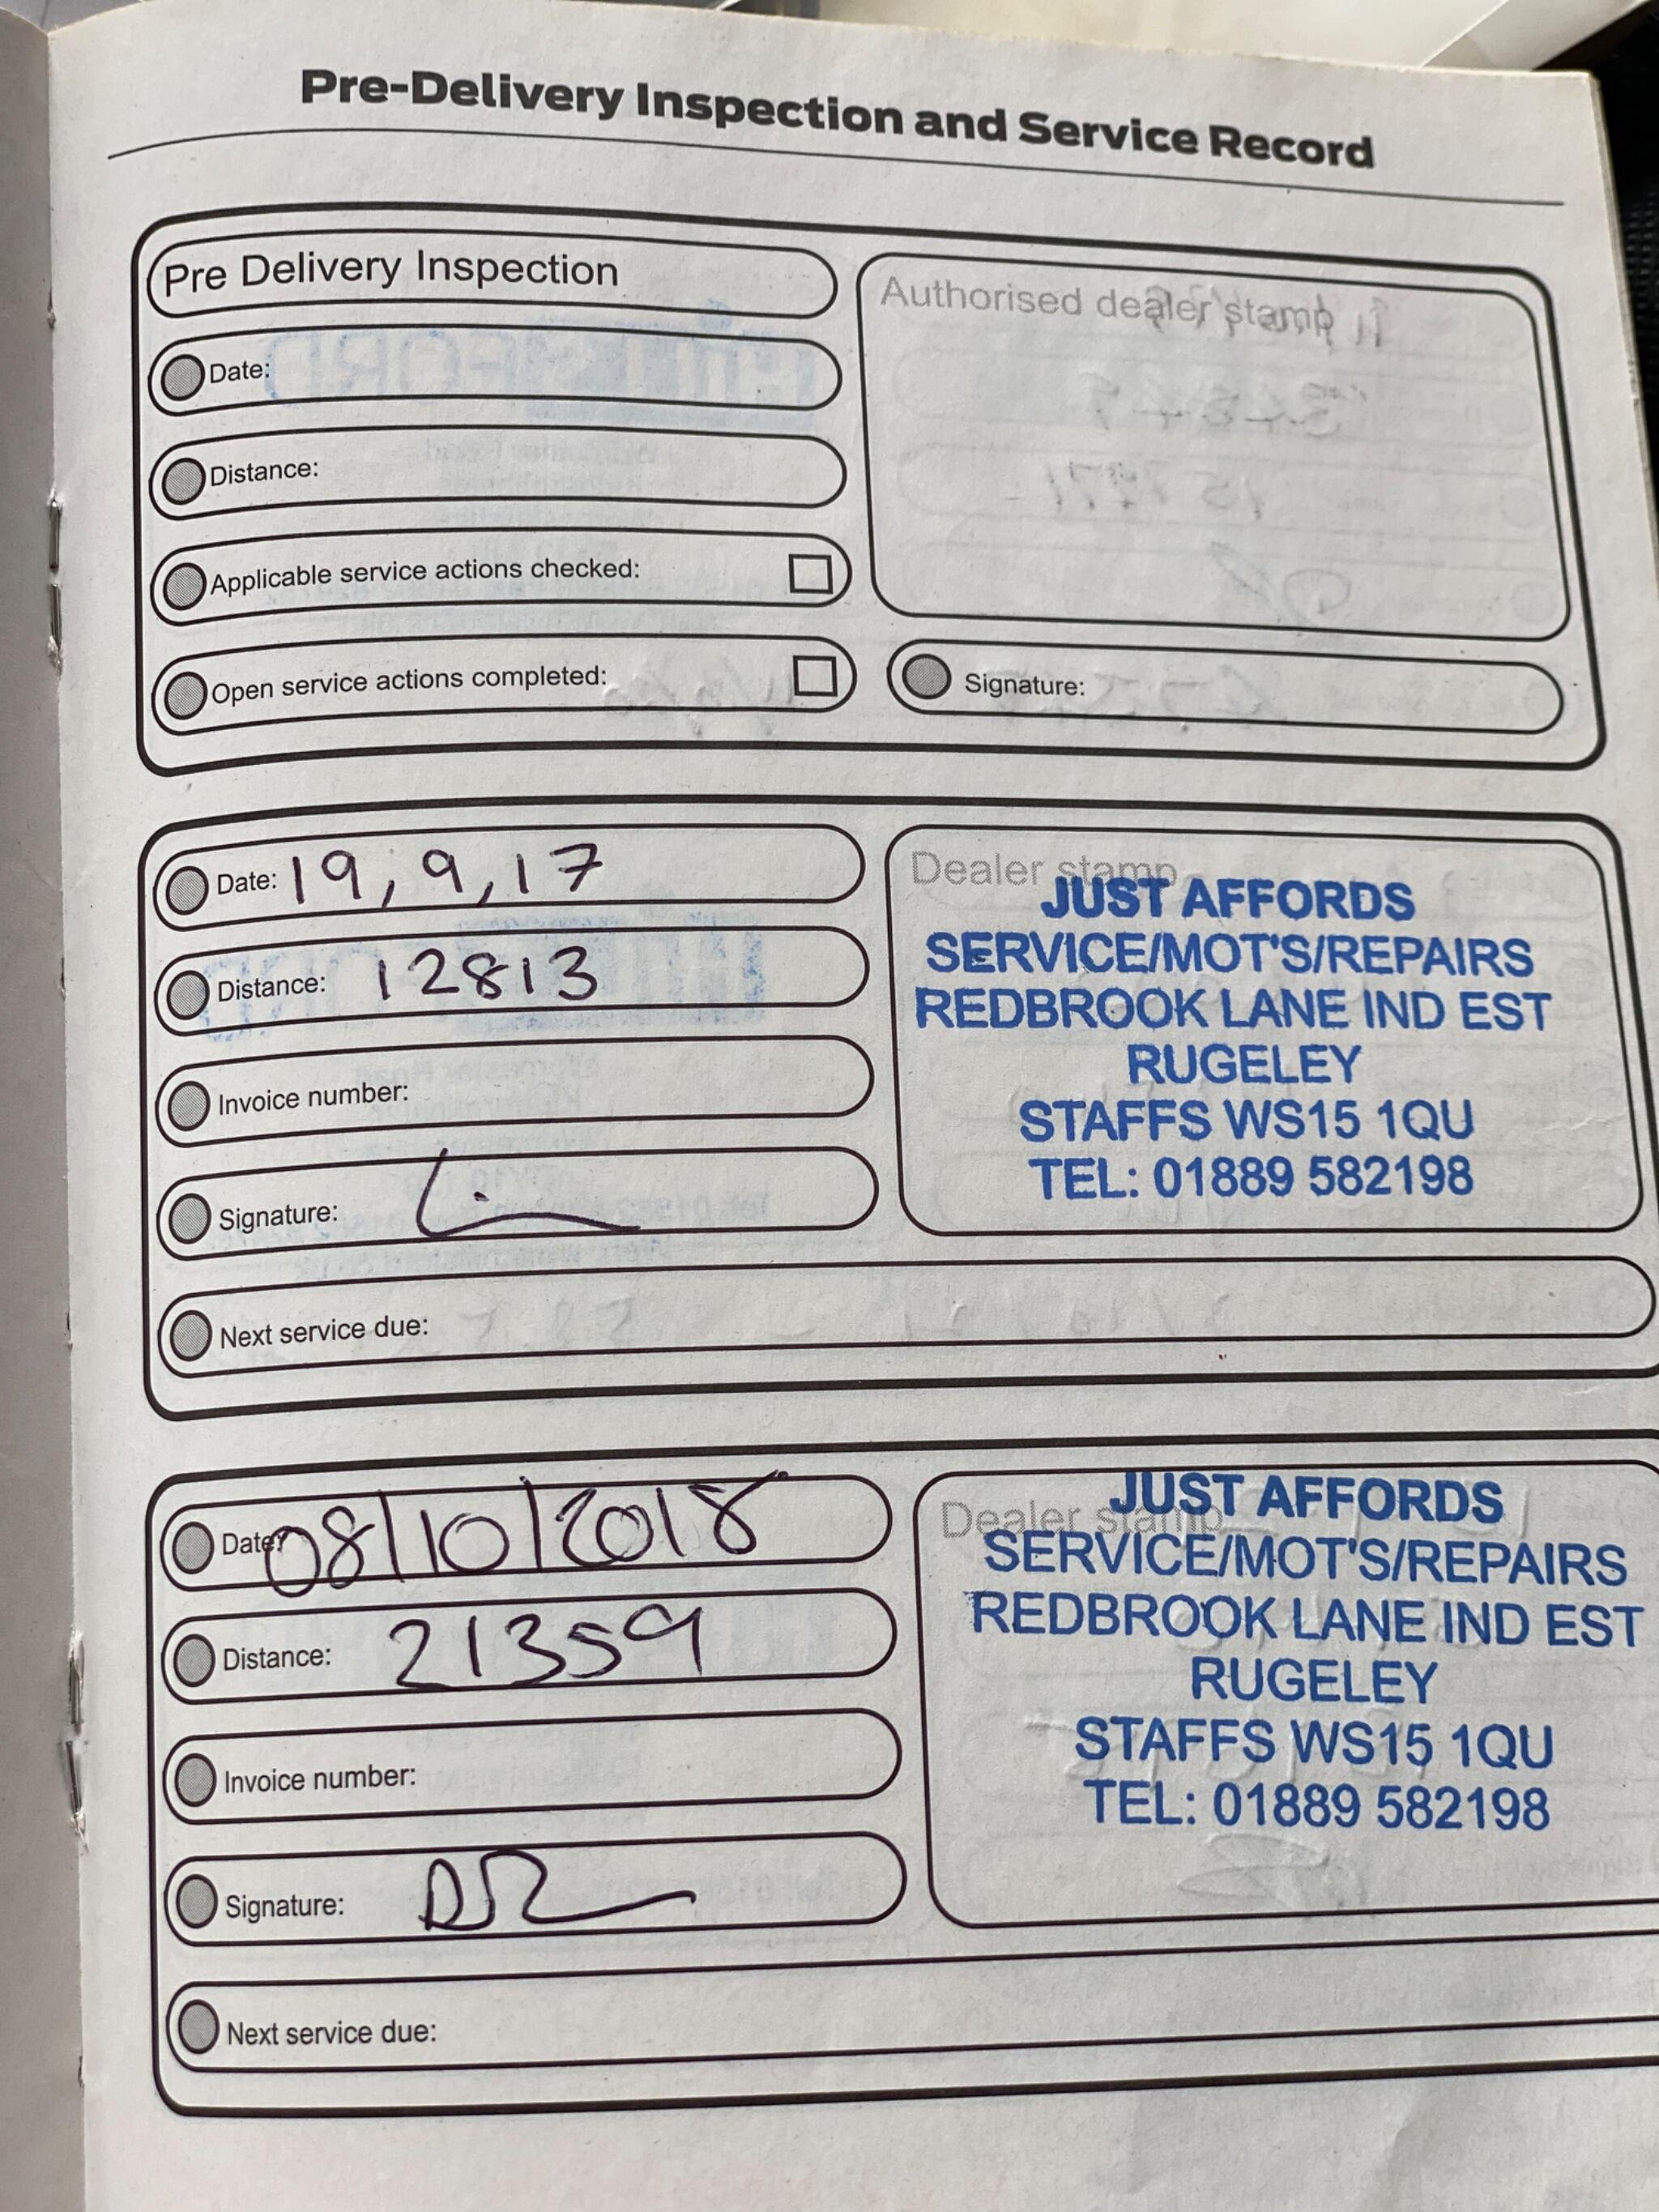 Pre-Delivery Inspection and Service Record
Pre Delivery Inspection
Authorised dealer stamp
Date:
Distance:
Applicable service actions checked:
Open service actions completed:
Signature:
Date: 19,9,17
Distance: 12813
Invoice number:
Signature:
Dealer stamp
JUST AFFORDS
SERVICE/MOT'S/REPAIRS
REDBROOK LANE IND EST
RUGELEY
STAFFS WS15 1QU
TEL: 01889 582198
Next service due:
Date: 08/10/2018
Distance: 21359
Invoice number:
Signature:
Dealer stamp
JUST AFFORDS
SERVICE/MOT'S/REPAIRS
REDBROOK LANE IND EST
RUGELEY
STAFFS WS15 1QU
TEL: 01889 582198
Next service due: